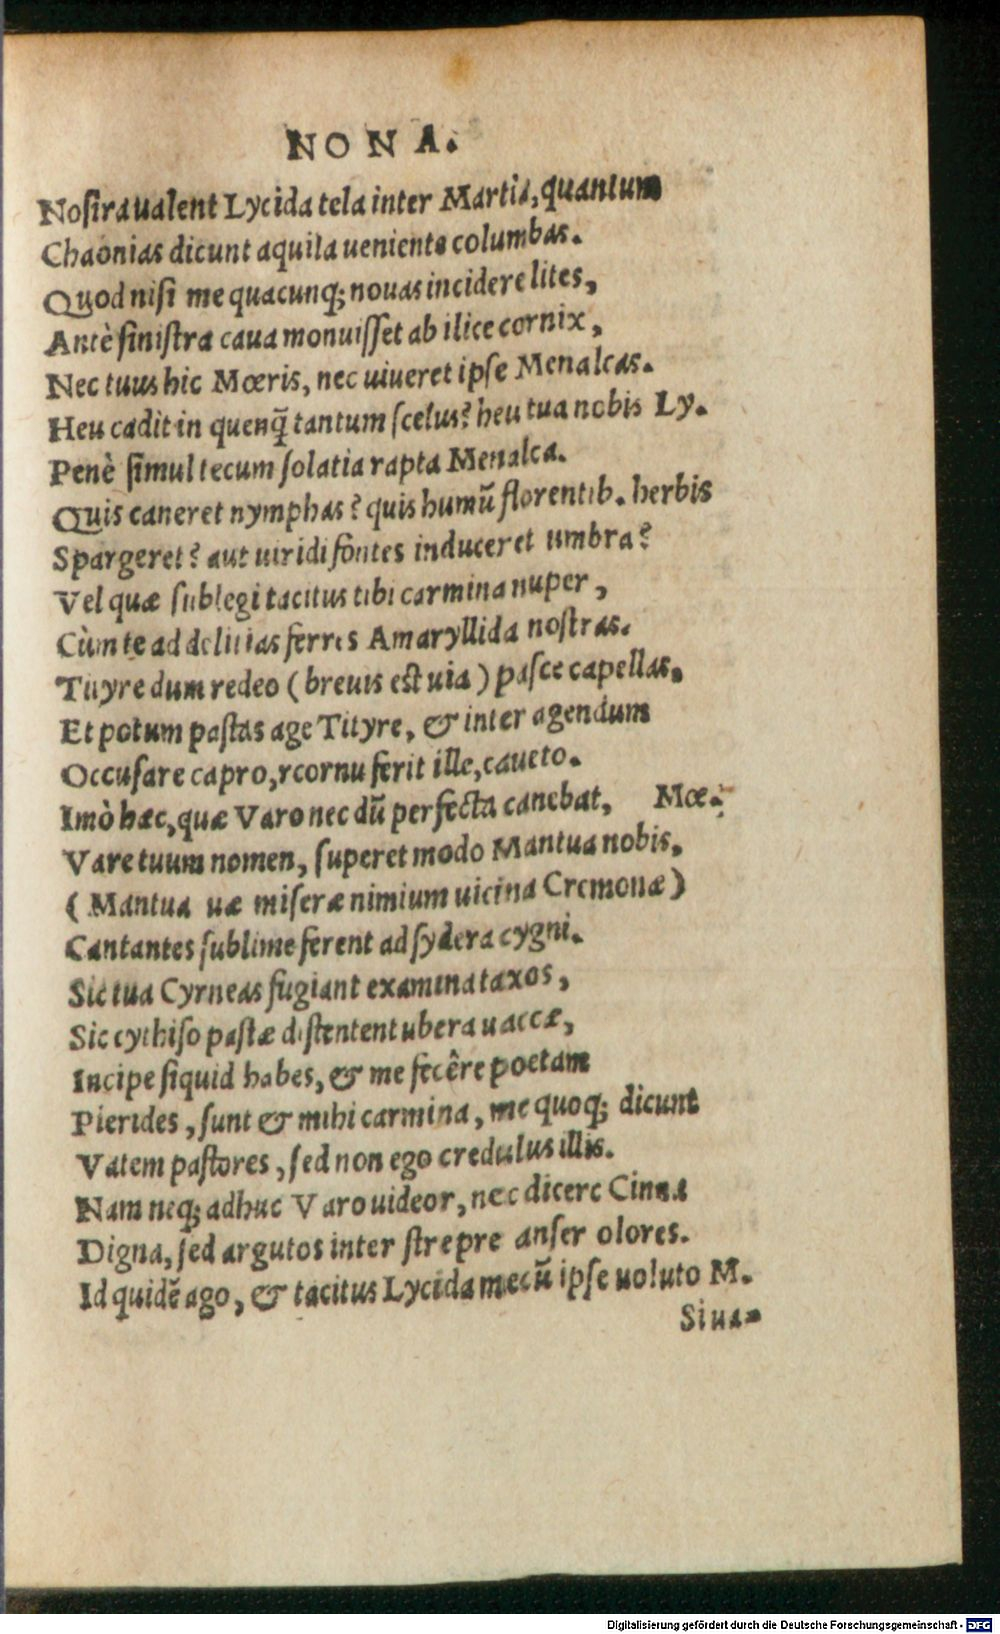 NONA.
Nostra ualent Lycida tela inter Martia, quantum
Chaonias dicunt aquila ueniente columbas.
Quod nisi me quacunq; nouas incidere lites,
Antè sinistra caua monuisset ab ilice cornix,
Nec tuus hic Mœris, nec uiueret ipse Menalcas.
Heu cadit in quenq̃ tantum scelus? heu tua nobis Ly.
Penè simul tecum solatia rapta Menalca.
Quis caneret nymphas? quis humũ florentib. herbis
Spargeret? aut uiridi fontes induceret umbra?
Vel quæ sublegi tacitus tibi carmina nuper,
Cùm te ad delitias ferres Amaryllida nostras.
Tityre dum redeo (breuis est uia) pasce capellas.
Et potum pastas age Tityre, & inter agendum
Occusare capro, rcornu ferit ille, caueto.
Imò hæc, quæ Varo nec dũ perfecta canebat, Mœ.
Vare tuum nomen, superet modo Mantua nobis,
(Mantua uæ miseræ nimium uicina Cremonæ)
Cantantes sublime ferent ad sydera cygni.
Sic tua Cyrneas fugiant examina taxos,
Sic cythiso pastæ distentent ubera uaccæ,
Incipe siquid habes, & me fecêre poetam
Pierides, sunt & mihi carmina, me quoq; dicunt
Vatem pastores, sed non ego credulus illis.
Nam neq; adhuc Varo uideor, nec dicere Cinna
Digna, sed argutos inter strepre anser olores.
Id quidẽ ago, & tacitus Lycida mecũ ipse uoluto M.
Siua-
Digitalisierung gefördert durch die Deutsche Forschungsgemeinschaft - DFG